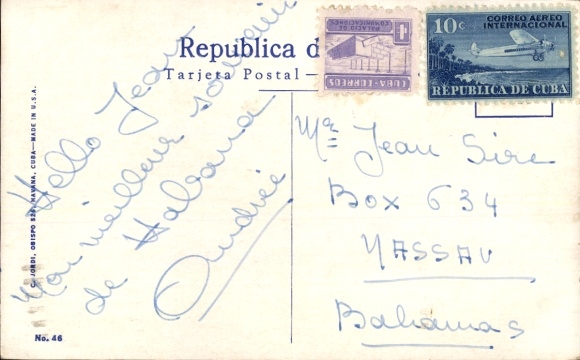 Republica d
Tarjeta Postal —
1c
PALACIO DE
COMUNICACIONES
CUBA-CORREOS
10c CORREO AEREO
INTERNACIONAL
REPUBLICA DE CUBA
Hello Jean
Mon meilleur souvenir
de Habana
Andrée
Mr Jean Sire
Box 634
NASSAU
Bahamas
C. JORDI, OBISPO HAVANA, CUBA—MADE IN U.S.A.
No. 46